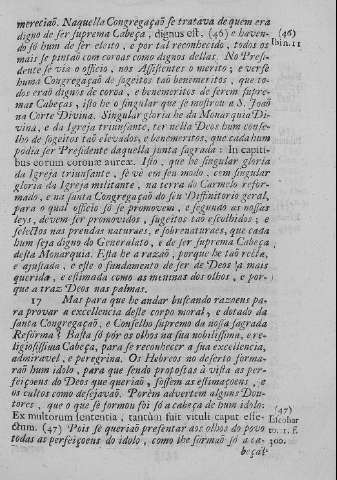 mereciaõ. Naquella Congregaçaõ se tratava de quem era
digno de ser suprema Cabeça, dignus est. (46) e haven- (46)
do só hum de ser eleito, e por tal reconhecido, todos os Ibin. 11
mais se pintaõ com coroas como dignos dellas. No Presi-
dente se via o officio, nos Assistentes o merito; e verse
huma Congregaçaõ de sogeitos taõ benemeritos, que to-
dos eraõ dignos de coroa, e benemeritos de serem supre-
mas Cabeças, isto he o singular que se mostrou a S. Joaõ
na Corte Divina. Singular gloria he da Monarquia Di-
vina, e da Igreja triunfante, ter nella Deos hum conse-
lho de sogeitos taõ elevados, e benemeritos, que cada hum
podia ser Presidente daquella junta sagrada: In capiti-
bus eorum coronæ aureæ. Isto, que he singular gloria
da Igreja triunfante, se vè em seu modo, com singular
gloria da Igreja militante, na terra do Carmelo refor-
mado, e na santa Congregaçaõ do seu Diffinitorio geral,
para o qual officio só se promovem, e segundo as nossas
leys, devem ser promovidos, sugeitos taõ escolhidos; e
selectos nas prendas naturaes, e sobrenaturaes, que cada
hum seja digno do Generalato, e de ser suprema Cabeça
desta Monarquia. Esta he a razaõ, porque he taõ recta,
e ajustada, e este o fundamento de ser de Deos a mais
querida, e estimada como as meninas dos olhos, e por-
que a traz Deos nas palmas.
17 Mas para que he andar buscando razoens pa-
ra provar a excellencia deste corpo moral, e dotado da
santa Congregaçaõ, e Conselho supremo da nossa sagrada
Refórma? Basta só pòr os olhos na sua nobilissima, e re-
ligiosissima Cabeça, para se reconhecer a sua excellencia,
admiravel, e peregrina. Os Hebreos no deserto forma-
raõ hum idolo, para que sendo propostas à vista as per-
feiçoens do Deos que queriaõ, fossem as estimaçoens, e
os cultos como desejavaõ. Porèm advertem alguns Dou-
tores, que o que se formou foi só a cabeça de hum idolo:
Ex multorum sententia, tantùm fuit vituli caput effe- (47)
ctum. (47) Pois se queriaõ presentar aos olhos do povo Escobar
todas as perfeiçoens do idolo, como lhe formaõ só a ca- to. 1. f.
beça? 300.